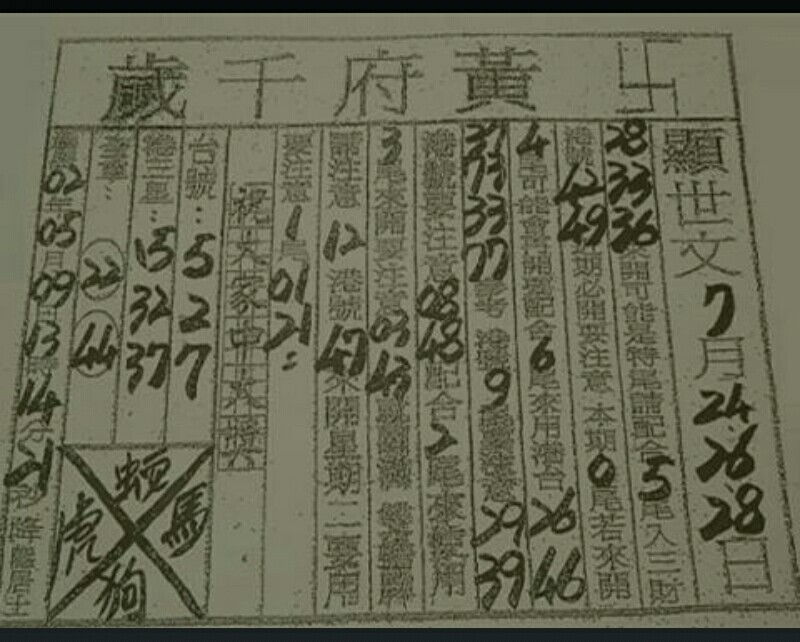 卐黃府千歲
顯世文7月24.26.28日
28 33 36來開可能是特尾請配合5尾入三財
港號42 49本期必開要注意 本期0尾若來開
4尾可能會再開要配合6尾來用港台26 46
37 73 33 77參考 港號9尾要注意29 39
港號要注意08 48配合2尾來使用
3尾來開要注意03 43
請注意12港號47來開星期二要用
要注意1尾01 21:
祝大家中大獎
台號:5 2 7
港三星:15 32 37
22 44
02年05月09 13時14分21秒降
虎 馬 狗